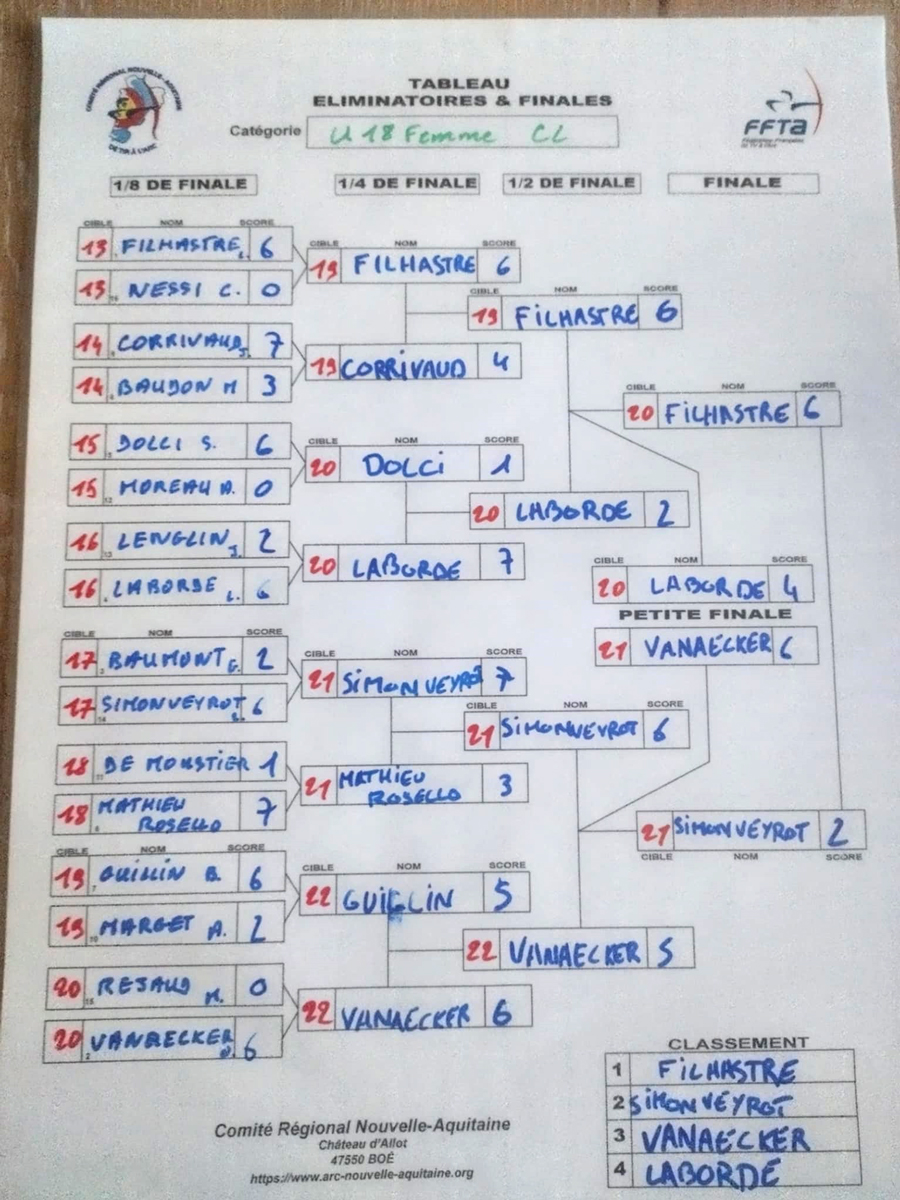 COMITÉ RÉGIONAL NOUVELLE-AQUITAINE
DE TIR À L'ARC
TABLEAU
ELIMINATOIRES & FINALES
Catégorie U 18 Femme CL
FFTA
Fédération Française
de Tir à l'Arc
1/8 DE FINALE 1/4 DE FINALE 1/2 DE FINALE FINALE
CIBLE NOM SCORE
13 FILHASTRE L. 6
13 NESSI C. 0
14 CORRIVAUD J. 7
14 BAUDON M 3
15 DOLCI S. 6
15 MOREAU A. 0
16 LENGLIN J. 2
16 LABORDE L. 6
CIBLE NOM SCORE
17 BAUMONT E. 2
17 SIMONVEYROT 6
18 DE MOUSTIER 1
18 MATHIEU
ROSELLO 7
CIBLE NOM SCORE
19 GUILLIN B. 6
19 MARGET A. 2
20 REJAUD M. 0
20 VANAECKER 6
CIBLE NOM SCORE
19 FILHASTRE 6
19 CORRIVAUD 4
CIBLE NOM SCORE
20 DOLCI 1
20 LABORDE 7
CIBLE NOM SCORE
21 SIMONVEYROT 7
21 MATHIEU
ROSELLO 3
CIBLE NOM SCORE
22 GUILLIN 5
22 VANAECKER 6
CIBLE NOM SCORE
19 FILHASTRE 6
20 LABORDE 2
CIBLE NOM SCORE
21 SIMONVEYROT 6
22 VANAECKER 5
CIBLE NOM SCORE
20 FILHASTRE 6
CIBLE NOM SCORE
20 LABORDE 4
PETITE FINALE
21 VANAECKER 6
21 SIMONVEYROT 2
CIBLE NOM SCORE
CLASSEMENT
1 FILHASTRE
2 SIMONVEYROT
3 VANAECKER
4 LABORDE
Comité Régional Nouvelle-Aquitaine
Château d'Allot
47550 BOÉ
https://www.arc-nouvelle-aquitaine.org